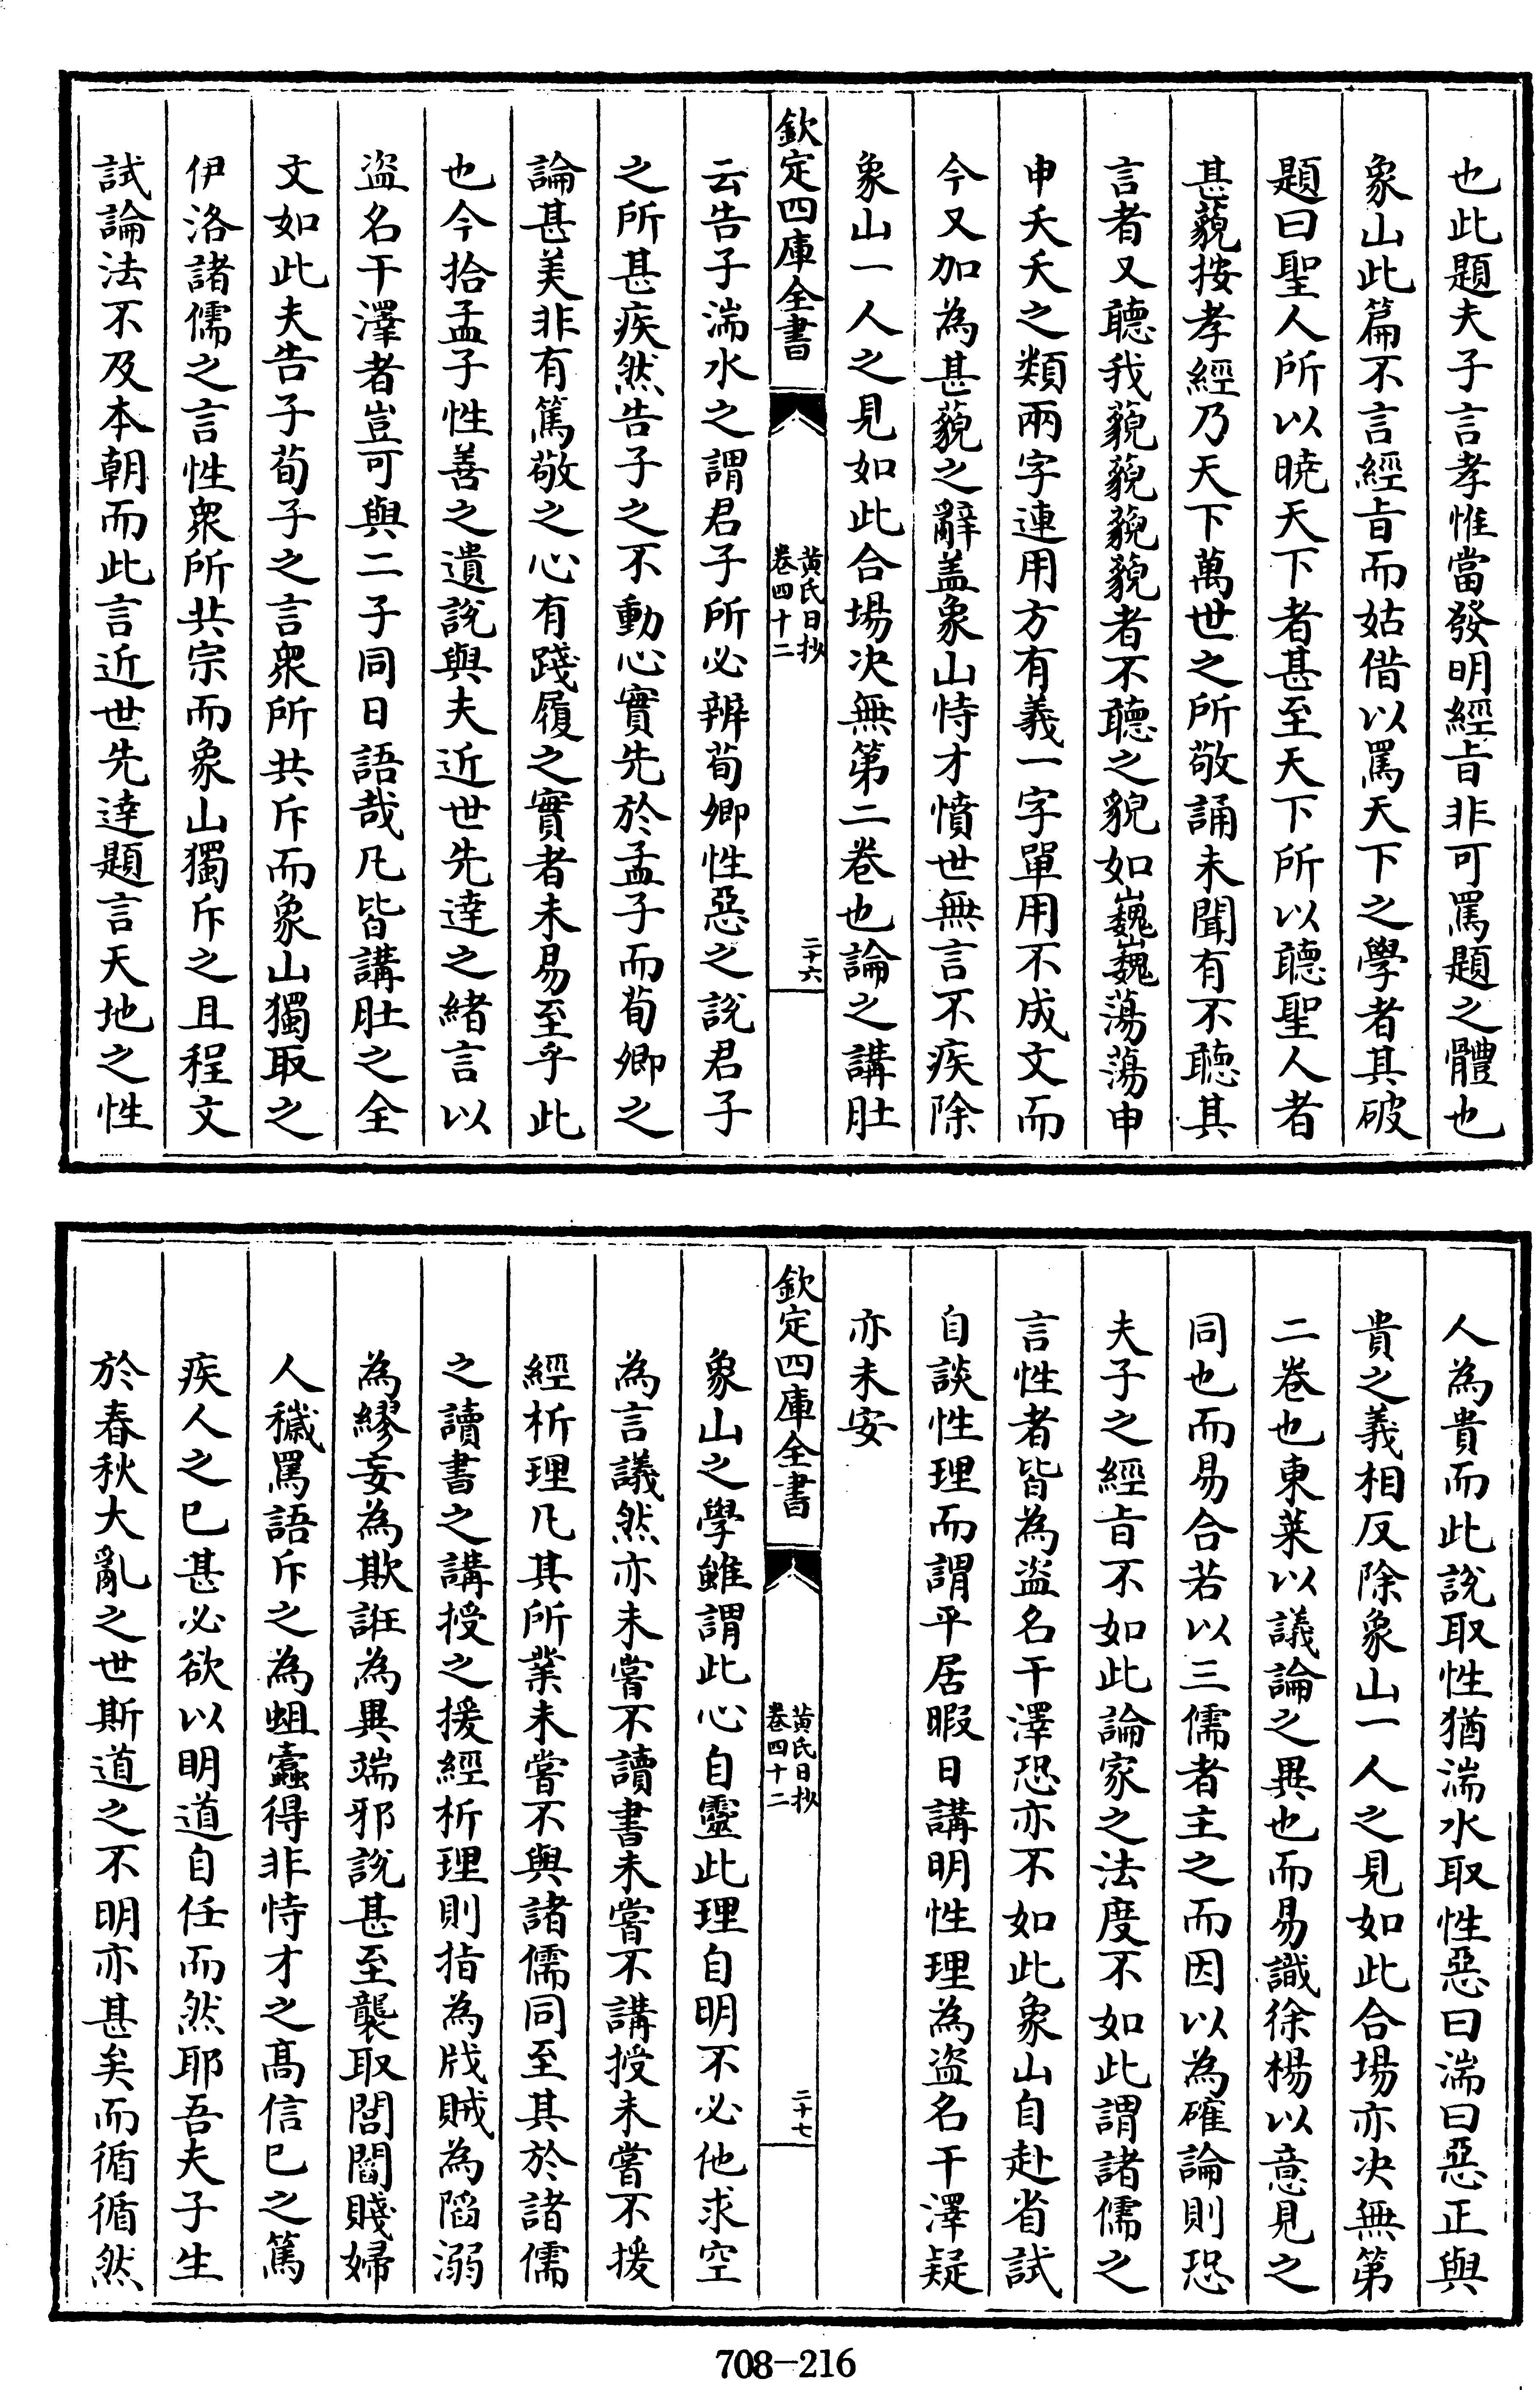 也此題夫子言孝惟當發明經㫖非可罵題之體也
象山此篇不言經㫖而姑借以罵天下之學者其破
題曰聖人所以曉天下者甚至天下所以聽聖人者
甚藐按孝經乃天下萬世之所敬誦未聞有不聽其
言者又聽我藐藐藐藐者不聽之貌如巍巍蕩蕩申
申夭夭之類兩字連用方有義一字單用不成文而
今又加為甚藐之辭盖象山恃才憤世無言不疾除
象山一人之見如此合場決無第二卷也論之講肚
欽定四庫全書
黄氏日抄
卷四十二
二十六
云告子湍水之謂君子所必辨荀卿性惡之說君子
之所甚疾然告子之不動心實先於孟子而荀卿之
論甚美非有篤敬之心有踐履之實者未易至乎此
也今拾孟子性善之遺説與夫近世先達之緒言以
盗名干澤者豈可與二子同日語哉凡皆講肚之全
文如此夫告子荀子之言衆所共斥而象山獨取之
伊洛諸儒之言性衆所共宗而象山獨斥之且程文
試論法不及本朝而此言近世先達題言天地之性
人為貴而此説取性猶湍水取性惡曰湍曰惡正與
貴之義相反除象山一人之見如此合場亦決無第
二卷也東萊以議論之異也而易識徐楊以意見之
同也而易合若以三儒者主之而因以為確論則恐
夫子之經㫖不如此論家之法度不如此謂諸儒之
言性者皆為盗名干澤恐亦不如此象山自赴省試
自談性理而謂平居暇日講明性理為盗名干澤疑
亦未安
欽定四庫全書
黄氏日抄
卷四十二
二十七
象山之學雖謂此心自靈此理自明不必他求空
為言議然亦未嘗不讀書未嘗不講授未嘗不援
經析理凡其所業未嘗不與諸儒同至其於諸儒
之讀書之講授之援經析理則指為戕賊為陷溺
為繆妄為欺誑為異端邪説甚至襲取閭閻賤婦
人穢罵語斥之為蛆蠧得非恃才之髙信已之篤
疾人之已甚必欲以明道自任而然耶吾夫子生
於春秋大亂之世斯道之不明亦甚矣而循循然
708-216